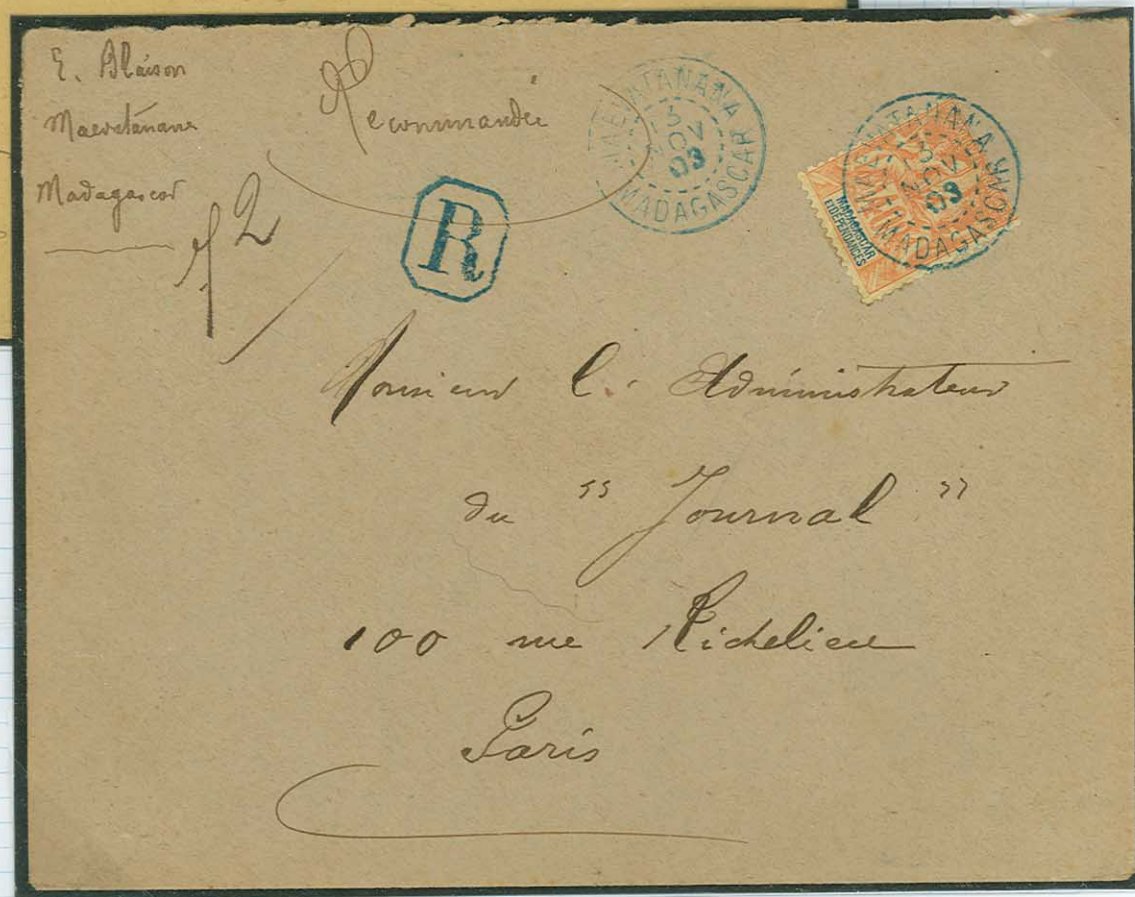 E. Blaison
Maevatanana
Madagascar
Recommandée
R
MAEVATANANA
3
NOV
03
MADAGASCAR
MAEVATANANA
3
NOV
03
MADAGASCAR
MADAGASCAR
ET DÉPENDANCES
Monsieur l. Administrateur
du "Journal"
100 rue Richelieu
Paris